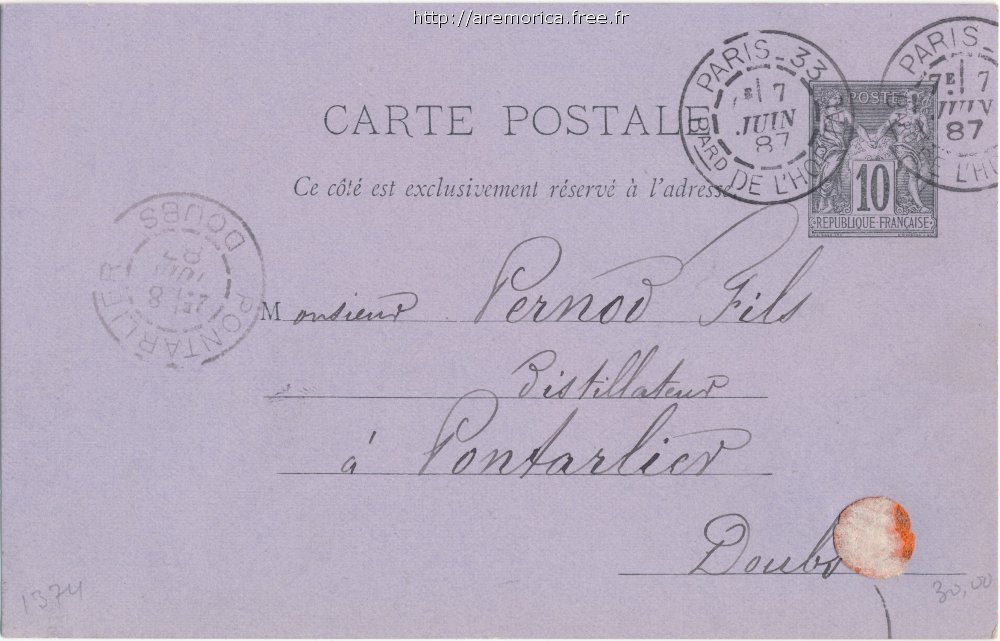 http://aremorica.free.fr
PARIS_33
7E 7
JUIN
87
Bard DE L'HOPITAL
PARIS_
7E 7
JUIN
87
DE L'HO
CARTE POSTALE
Ce côté est exclusivement réservé à l'adresse
POSTE
10
REPUBLIQUE FRANÇAISE
PONTARLIER
8
DOUBS
Monsieur Pernod Fils
Distillateur
à Pontarlier
Doubs
1374
30,00